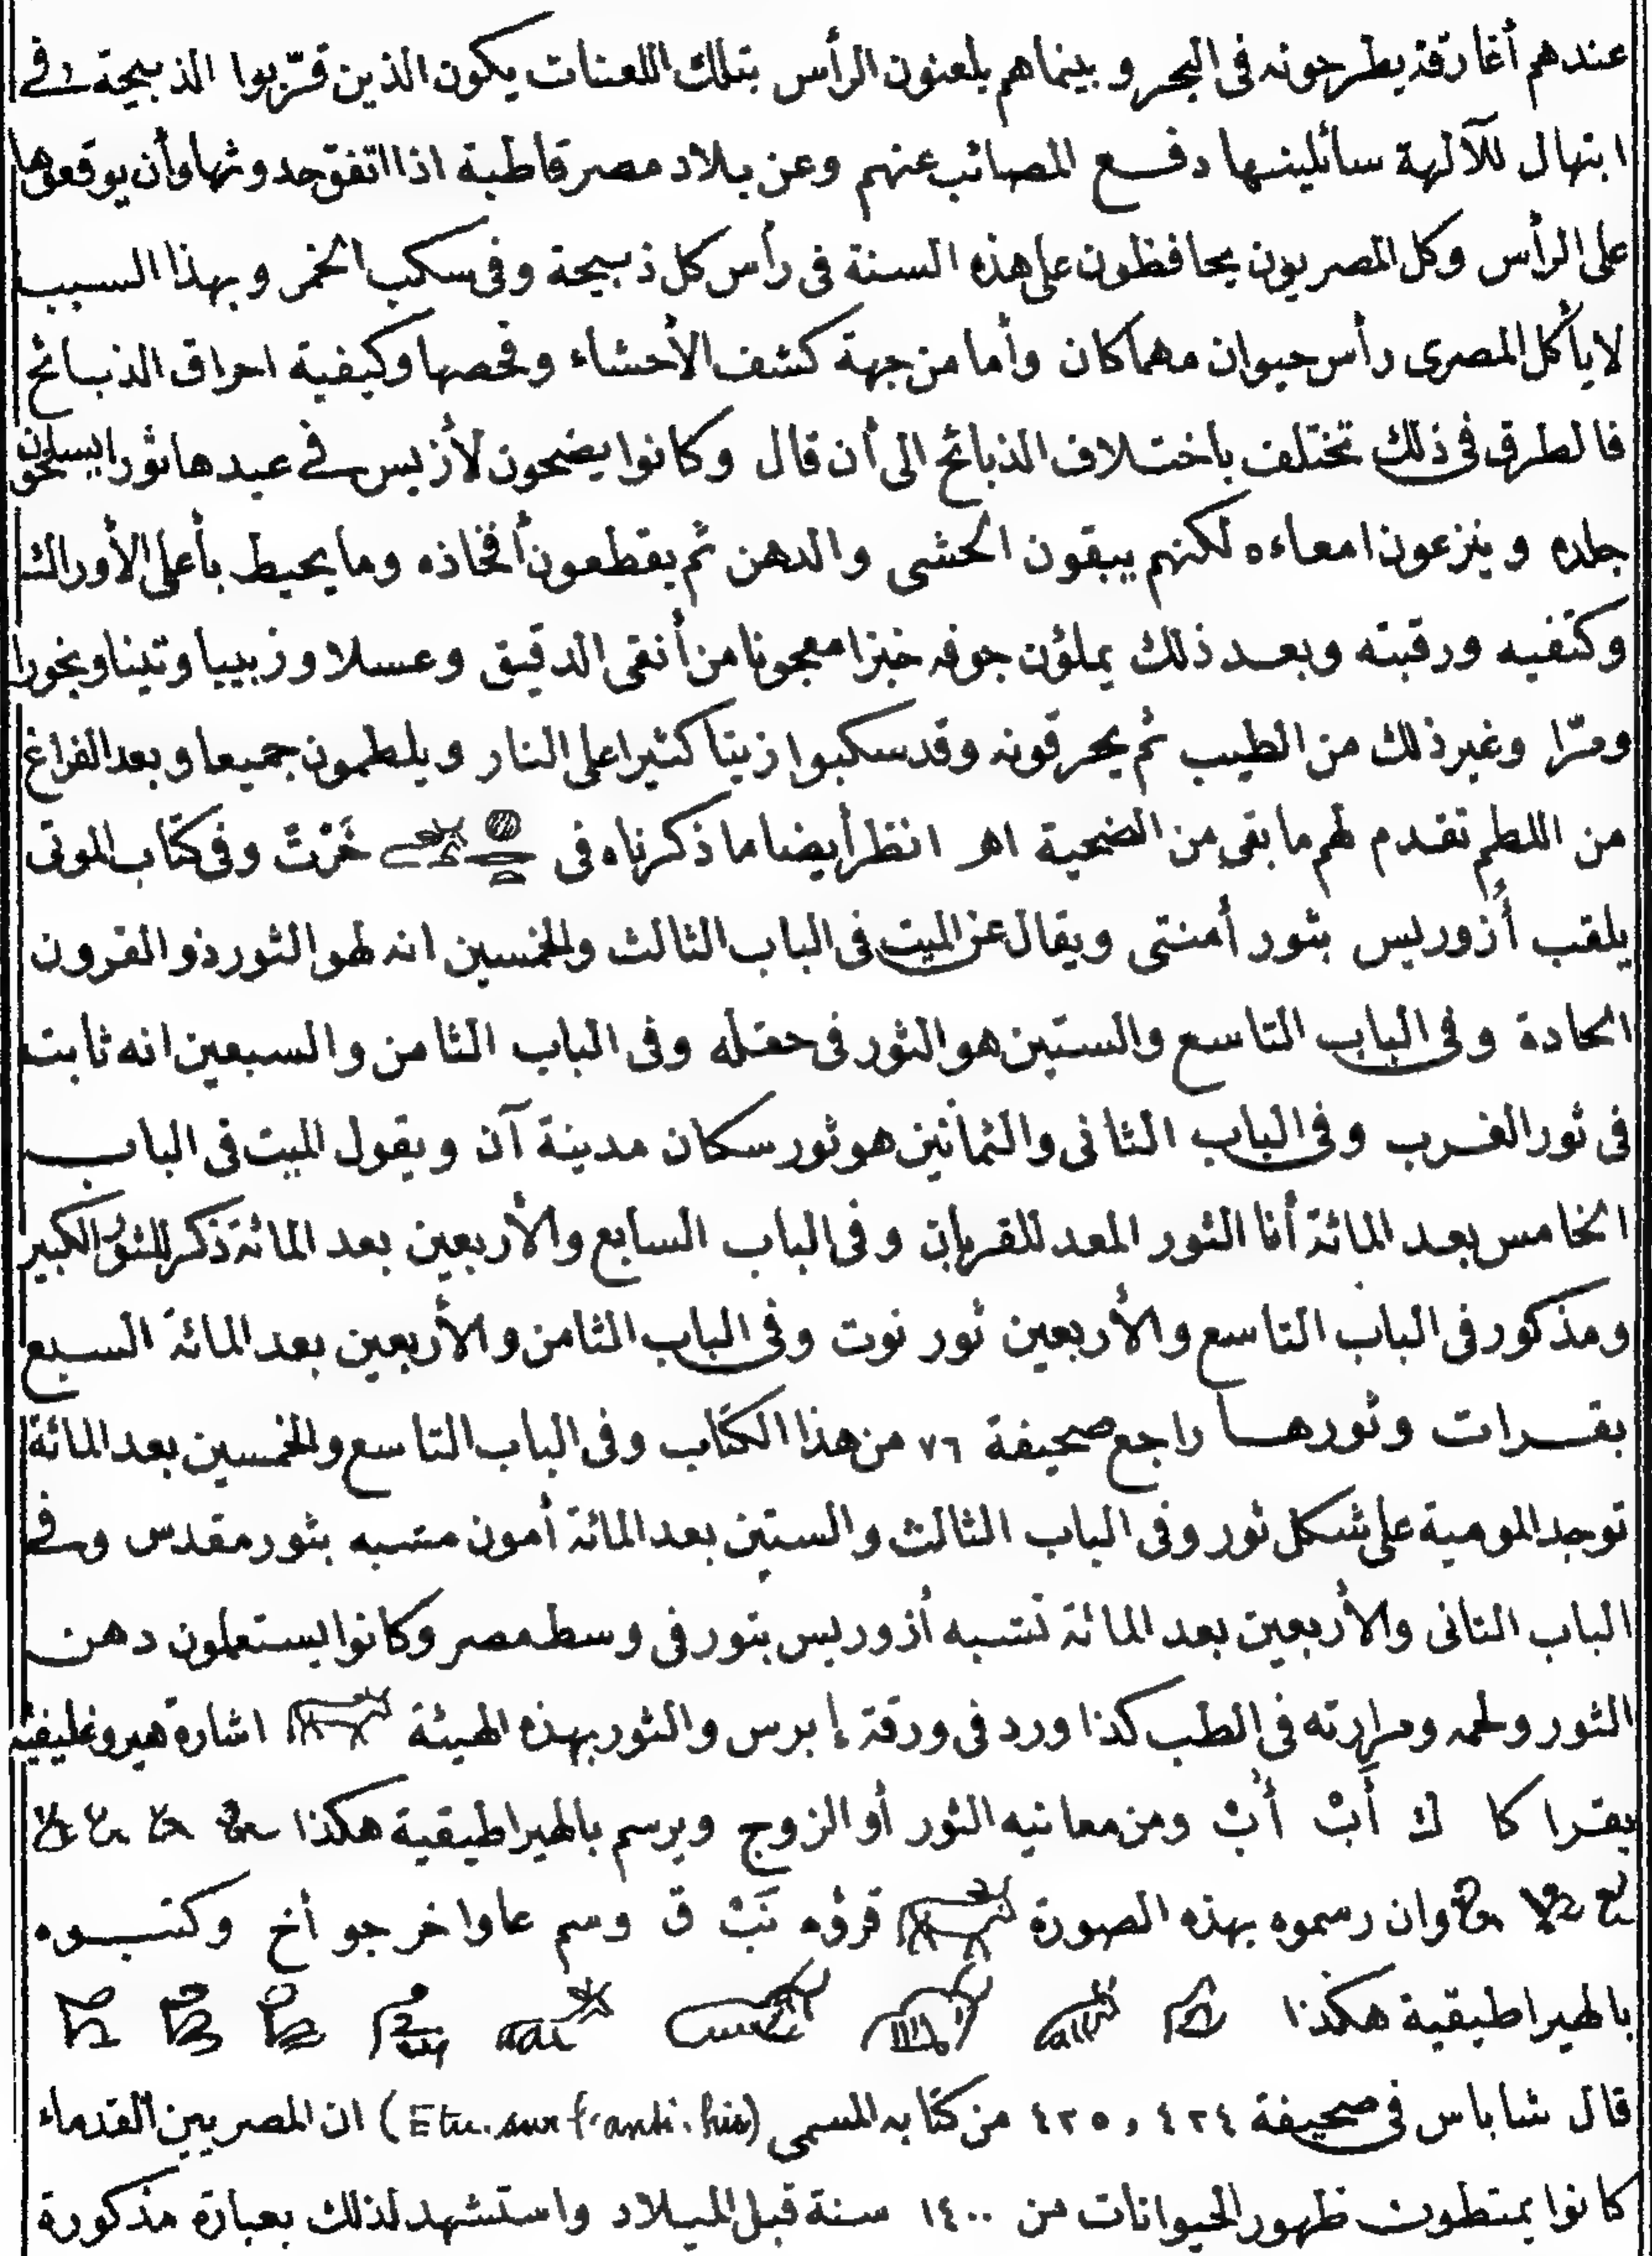 عندهم أغارقة يطرحونه فى البحر و بينماهم يلعنون الرأس بتلك اللعنات يكون الذين قرّبوا الذبيحة فى
ابتهال للآلهة سائلينها دفع المصائب عنهم وعن بلاد مصر قاطبة اذا اتفق حدوثها وأن يوقعوها
على الرأس وكل المصريون يحافظون على هذه السنة فى رأس كل ذبيحة وفى سكب الخمر وبهذا السبب
لا يأكل المصرى رأس حيوان مهما كان وأما من جهة كشف الأحشاء وفحصها وكيفية احراق الذبائح
فالطرق فى ذلك تختلف باختلاف الذبائح الى أن قال وكانوا يضحون لأزيس فى عيدها ثورا يسلخون
جلده وينزعون امعاءه لكنهم يبقون الحشى والدهن ثم يقطعون أفخاذه وما يحيط بأعلى الأوراك
وكتفيه ورقبته وبعد ذلك يملؤن جوفه خبزا معجونا من أنقى الدقيق وعسلا وزبيبا وتينا وبخورا
ومرّا وغير ذلك من الطيب ثم يحرقونه وقد سكبوا زيتا كثيرا على النار ويلطمون جميعا وبعد الفراغ
من اللطم تقدم لهم ما بقى من الضحية اهـ انظر أيضا ما ذكرناه فى خَرْتْ وفى كتاب الموتى
يلقب أُزوريس بثور أمنتى ويقال عن الميت فى الباب الثالث والخمسين انه لهو الثور ذو القرون
الحادة وفى الباب التاسع والستين هو الثور فى حقله وفى الباب الثامن والسبعين انه ثابت
فى ثور الغرب وفى الباب الثانى والثمانين هو ثور سكان مدينة آن ويقول الميت فى الباب
الخامس بعد المائة أنا الثور المعد للقربان وفى الباب السابع والأربعين بعد المائة ذكر للثور الكبير
ومذكور فى الباب التاسع والأربعين ثور نوت وفى الباب الثامن والأربعين بعد المائة السبع
بقرات وثورها راجع صحيفة ٧٦ من هذا الكتاب وفى الباب التاسع والخمسين بعد المائة
توجد الموهية على شكل ثور وفى الباب الثالث والستين بعد المائة أمون مشبه بثور مقدس وفى
الباب الثانى والأربعين بعد المائة تشبه أزوريس بثور فى وسط مصر وكانوا يستعملون دهن
الثور ولحمه ومرارته فى الطب كذا ورد فى ورقة إبرس والثور بهذه الهيئة اشارة هيروغليفية
يقرا كا ك أَبْ أُبْ ومن معانيه الثور أو الزوج ويرسم بالهيراطيقية هكذا
وان رسموه بهذه الصورة قرؤه نَبْ ق وسم عاوا خر جو أخ وكتبوه
بالهيراطيقية هكذا
قال شاباس فى صحيفة ٤٢٤ و ٤٢٥ من كتابه المسمى (Etu. sur l'anti. his) ان المصريين القدماء
كانوا يمتطون ظهور الحيوانات من ١٤٠٠ سنة قبل الميلاد واستشهد لذلك بعبارة مذكورة